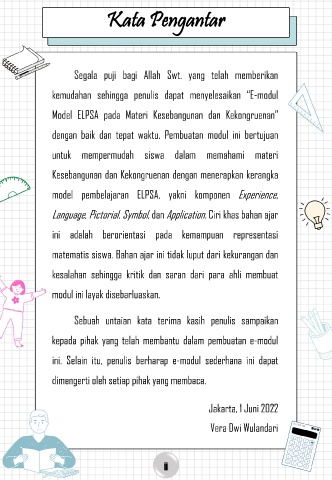 Kata Pengantar
Segala puji bagi Allah Swt. yang telah memberikan
kemudahan sehingga penulis dapat menyelesaikan "E-modul
Model ELPSA pada Materi Kesebangunan dan Kekongruenan"
dengan baik dan tepat waktu. Pembuatan modul ini bertujuan
untuk mempermudah siswa dalam memahami materi
Kesebangunan dan Kekongruenan dengan menerapkan kerangka
model pembelajaran ELPSA, yakni komponen Experience,
Language, Pictorial, Symbol, dan Application. Ciri khas bahan ajar
ini adalah berorientasi pada kemampuan representasi
matematis siswa. Bahan ajar ini tidak luput dari kekurangan dan
kesalahan sehingga kritik dan saran dari para ahli membuat
modul ini layak disebarluaskan.
Sebuah untaian kata terima kasih penulis sampaikan
kepada pihak yang telah membantu dalam pembuatan e-modul
ini. Selain itu, penulis berharap e-modul sederhana ini dapat
dimengerti oleh setiap pihak yang membaca.
Jakarta, 1 Juni 2022
Vera Dwi Wulandari